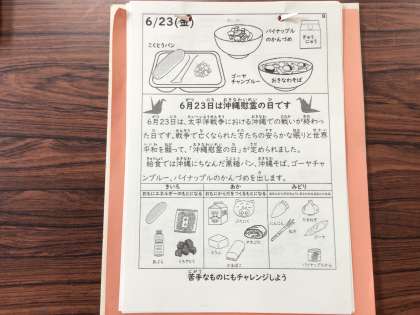 6/23(金)
こくとうパン
パイナップル
のかんづめ
ぎゅう
にゅう
ゴーヤ
チャンプルー
おきなわそば
6月23日は沖縄慰霊の日です
6月23日は、太平洋戦争における沖縄での戦いが終わっ
た日です。戦争で亡くなられた方たちの安らかな眠りと世界
平和を願って、「沖縄慰霊の日」が定められました。
給食では沖縄にちなんだ黒糖パン、沖縄そば、ゴーヤチャ
ンプルー、パイナップルのかんづめを出します。
きいろ
あか
みどり
おもにエネルギーのもとになる
おもにからだをつくるもとになる
ぎゅうにゅう
ぶたにく
とうふ
かまぼこ
にんじん
たまねぎ
ゴーヤ
パイナップルかん
苦手なものにもチャレンジしよう